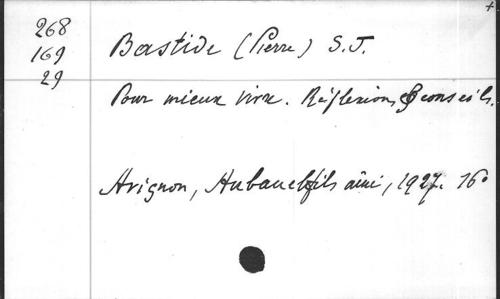 268
169
29
Bastide (Pierre) S.J.
Pour mieux vivre. Réflexions & conseils.
Avignon, Aubanel fils aîné, 1927. 16°